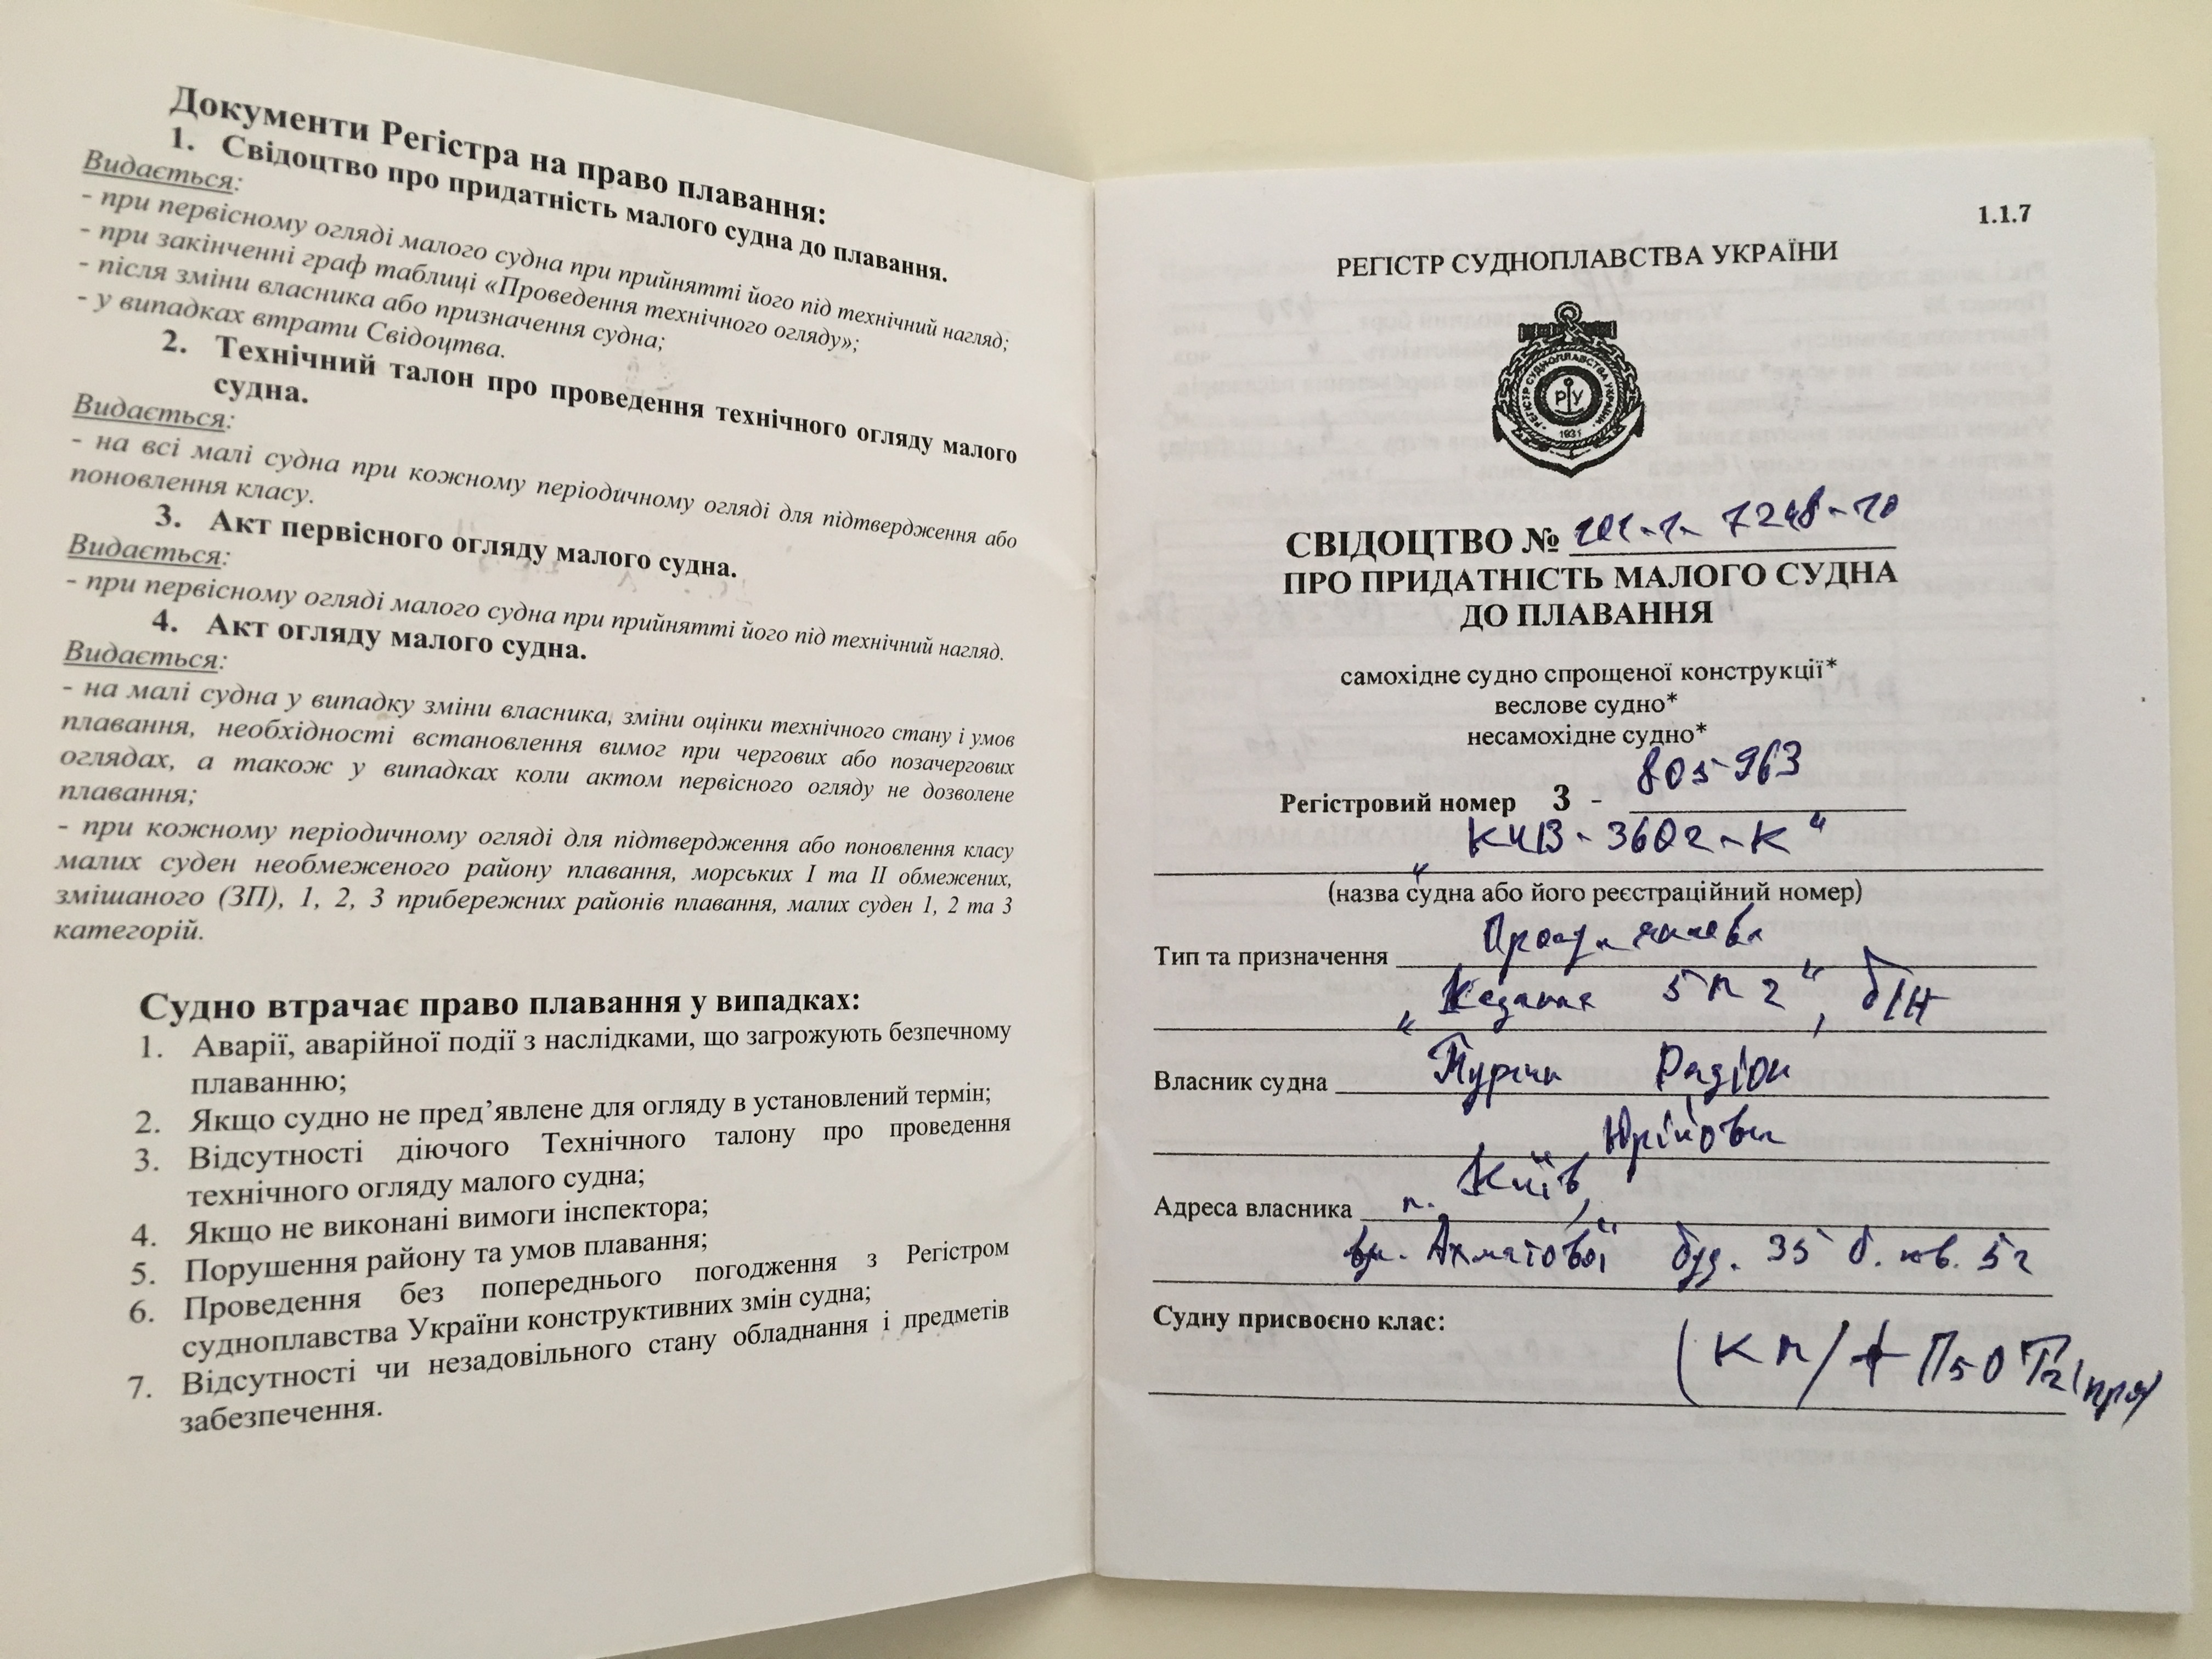 Документи Регістра на право плавання:
1. Свідоцтво про придатність малого судна до плавання.
Видається:
- при первісному огляді малого судна при прийнятті його під технічний нагляд;
- при закінченні граф таблиці «Проведення технічного огляду»;
- після зміни власника або призначення судна;
- у випадках втрати Свідоцтва.
2. Технічний талон про проведення технічного огляду малого
судна.
Видається:
- на всі малі судна при кожному періодичному огляді для підтвердження або
поновлення класу.
3. Акт первісного огляду малого судна.
Видається:
- при первісному огляді малого судна при прийнятті його під технічний нагляд.
4. Акт огляду малого судна.
Видається:
- на малі судна у випадку зміни власника, зміни оцінки технічного стану і умов
плавання, необхідності встановлення вимог при чергових або позачергових
оглядах, а також у випадках коли актом первісного огляду не дозволене
плавання;
- при кожному періодичному огляді для підтвердження або поновлення класу
малих суден необмеженого району плавання, морських I та II обмежених,
змішаного (ЗП), 1, 2, 3 прибережних районів плавання, малих суден 1, 2 та 3
категорій.
Судно втрачає право плавання у випадках:
1. Аварії, аварійної події з наслідками, що загрожують безпечному
плаванню;
2. Якщо судно не пред’явлене для огляду в установлений термін;
3. Відсутності діючого Технічного талону про проведення
технічного огляду малого судна;
4. Якщо не виконані вимоги інспектора;
5. Порушення району та умов плавання;
6. Проведення без попереднього погодження з Регістром
судноплавства України конструктивних змін судна;
7. Відсутності чи незадовільного стану обладнання і предметів
забезпечення.
1.1.7
РЕГІСТР СУДНОПЛАВСТВА УКРАЇНИ
РЕГІСТР СУДНОПЛАВСТВА УКРАЇНИ
РУ
1931
СВІДОЦТВО №
ПРО ПРИДАТНІСТЬ МАЛОГО СУДНА
ДО ПЛАВАННЯ
самохідне судно спрощеної конструкції*
веслове судно*
несамохідне судно*
Регістровий номер 3 - 805963
(назва судна або його реєстраційний номер)
Тип та призначення
б/н
Власник судна Радіон
Юрійович
Адреса власника м. Київ,
вул. Ахматової буд. 35 б. кв. 52
Судну присвоєно клас: